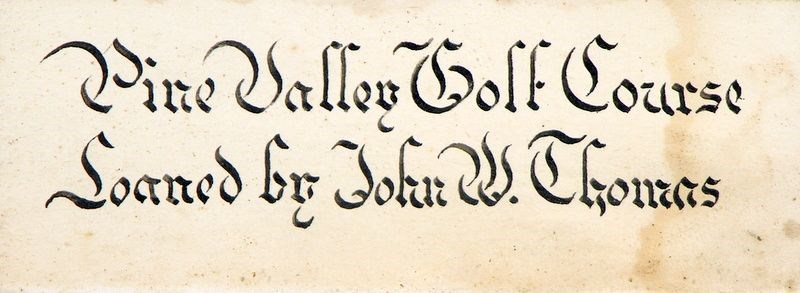 Pine Valley Golf Course
Loaned by John W. Thomas